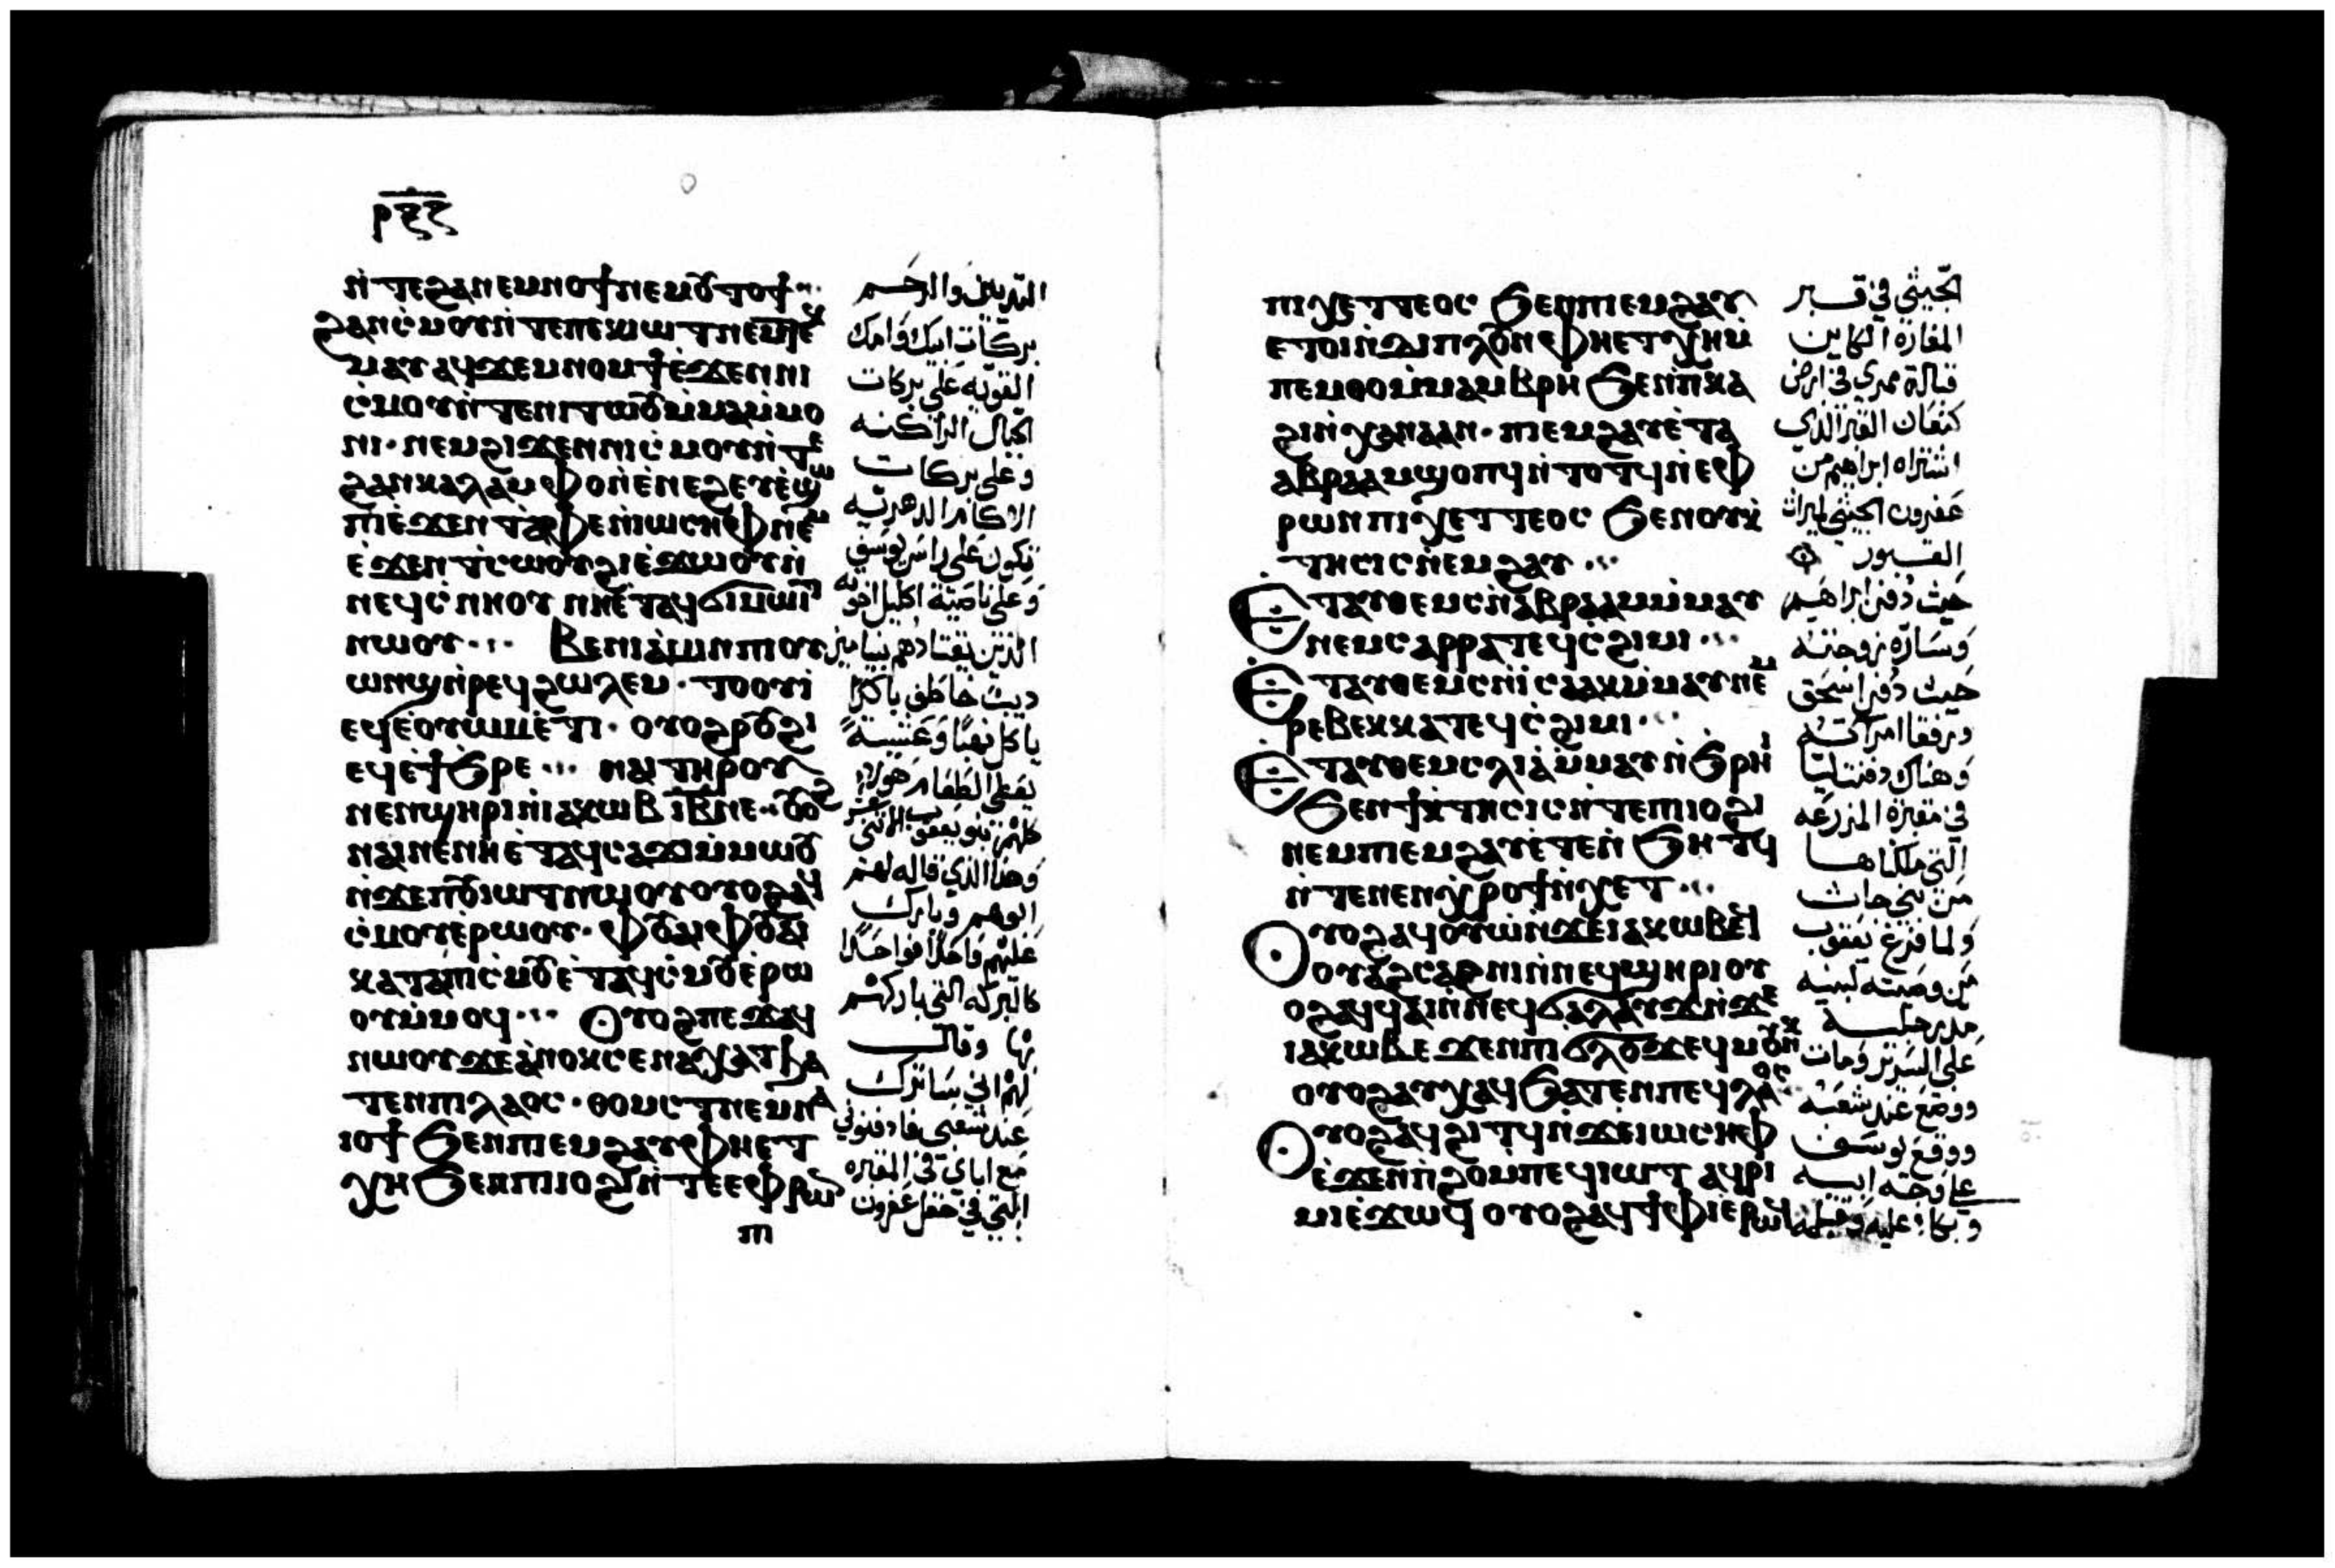 ⲣⲝⲋ
ⲛ̀ⲧⲉϩⲁⲛⲉⲙⲛⲟϯⲛⲉⲙⲟⲩⲧⲟϯ
ϩⲁⲛⲥ̀ⲙⲟⲩⲛ̀ⲧⲉⲡⲉⲕⲓⲱⲧⲛⲉⲙⲧⲉⲕ
ⲙⲁⲩⲁϥϫⲉⲙⲛⲟⲙϯⲉ̀ϫⲉⲛⲛⲓ
ⲥ̀ⲙⲟⲩⲛ̀ⲧⲉⲛⲓⲧⲱⲟⲩⲙ̀ⲙⲁⲙ̀ⲙⲟ
ⲛⲓ· ⲛⲉⲙϩⲓϫⲉⲛⲛⲓⲥ̀ⲙⲟⲩⲛ̀ⲧⲉ
ϩⲁⲛⲕⲁⲗⲁⲙⲫⲟⲛⲉ̀ⲛⲉϩⲉⲩⲉ̀ϣⲱ
ⲡⲓⲉ̀ϫⲉⲛⲧⲁⲫⲉⲛ̀ⲓⲱⲥⲏⲫⲛⲉⲙ
ⲉ̀ϫⲉⲛⲧⲥ̀ⲱⲟⲩϩⲓⲉ̀ϫⲱⲟⲩⲛ̀
ⲛⲉϥⲥ̀ⲛⲏⲟⲩ ⲛⲏⲉ̀ⲧⲁϥϭⲓⲙⲱⲓⲧ
ⲛⲱⲟⲩ· Ⲃⲉⲛⲓⲁⲙⲓⲛⲡⲓⲟⲩ
ⲱⲛϣⲛ̀ⲣⲉϥϩⲱⲗⲉⲙ· ⲧⲟⲟⲩⲓ̀
ⲉϥⲉ̀ⲟⲩⲱⲙⲉ̀ⲧⲓ· ⲟⲩⲟϩⲣⲟⲩϩⲓ
ⲉϥⲉ̀ϯϧⲣⲉ· ⲛⲁⲓⲧⲏⲣⲟⲩ
ⲛⲉⲛϣⲏⲣⲓⲛ̀ⲓⲁⲕⲱⲃ ⲓⲃ̅ⲛⲉ· ⲟⲩⲟϩ
ⲛⲁⲓⲛⲉⲛⲏⲉ̀ⲧⲁϥⲥⲁϫⲓⲙ̀ⲙⲱⲟⲩ
ⲛ̀ϫⲉⲡⲟⲩⲓⲱⲧⲛⲱⲟⲩⲟⲩⲟϩⲁϥ
ⲥ̀ⲙⲟⲩⲉ̀ⲣⲱⲟⲩ· ⲫⲟⲩⲁⲓⲫⲟⲩⲁⲓ
ⲕⲁⲧⲁⲡⲓⲥ̀ⲙⲟⲩⲉ̀ⲧⲁϥⲥ̀ⲙⲟⲩⲉ̀ⲣⲱ
ⲟⲩⲙ̀ⲙⲟϥ· Ⲟⲩⲟϩⲡⲉϫⲁϥ
ⲛⲱⲟⲩϫⲉⲁⲛⲟⲕⲥⲉⲛⲁⲭⲁⲧϧⲁ
ⲧⲉⲛⲡⲓⲗⲁⲟⲥ· ⲑⲟⲙⲥⲧⲛⲉⲙⲛⲁ
ⲓⲟϯϧⲉⲛⲡⲓⲉⲙϩⲁⲩⲫⲏⲉⲧ
ⲭⲏϧⲉⲛⲡⲓⲓⲟϩⲓⲛ̀ⲧⲉⲉⲫⲣⲱⲛ
ⲡⲓ
الثديين والرحم
بركات ابيك وامك
القويه على بركات
الجبال الراكنه
وعلى بركات
الاكام الدهريه
تكون على راس يوسف
وعلى ناصية اكليل اخوته
الذين يقتادهم بنيامين
ديب خاطف باكرًا
ياكل نهبًا وعشيةً
يعطى الطعام هولاء
كلهم بنو يعقوب الاثنى عشر
وهذا الذي قاله لهم
ابوهم وبارك
عليهم واحدًا فواحدًا
كالبركه التى باركهم
بها وقال
لهم انى ساترك
عند شعبى فادفنونى
مع اباى فى المقبره
التى فى حقل عفرون
ⲡⲓⲭⲉⲧⲧⲉⲟⲥ ϧⲉⲛⲡⲓⲉⲙϩⲁⲩ
ⲉⲧⲟⲓⲛ̀ϫⲓⲡⲗⲟⲩⲛⲫⲏⲉⲧⲭⲏⲙ̀
ⲡⲉⲙⲑⲟⲙ̀ⲙⲁⲙⲃⲣⲏ ϧⲉⲛⲡⲕⲁ
ϩⲓⲛ̀ⲭⲁⲛⲁⲁⲛ· ⲡⲓⲉⲙϩⲁⲩⲉ̀ⲧⲁ
ⲁⲃⲣⲁⲁⲙϣⲟⲡϥⲛ̀ⲧⲟⲧϥⲛ̀ⲉⲫ
ⲣⲱⲛⲡⲓⲭⲉⲧⲧⲉⲟⲥ ϧⲉⲛⲟⲩⲕ̀
ⲧⲏⲥⲓⲥⲛ̀ⲉⲙϩⲁⲩ·
Ⲉⲧⲁⲩⲑⲉⲙⲥⲛ̀ⲁⲃⲣⲁⲁⲙⲙ̀ⲙⲁⲩ
ⲛⲉⲙⲥⲁⲣⲣⲁⲧⲉϥⲥ̀ϩⲓⲙⲓ·
Ⲉⲧⲁⲩⲑⲉⲙⲥⲛ̀ⲓⲥⲁⲁⲕⲙ̀ⲙⲁⲩⲛⲉⲙ
ⲣⲉⲃⲉⲕⲕⲁⲧⲉϥⲥ̀ϩⲓⲙⲓ·
Ⲉⲧⲁⲩⲑⲉⲙⲥⲗⲓⲁⲙ̀ⲙⲁⲩⲛ̀ϧⲣⲏⲓ
ϧⲉⲛϯⲕ̀ⲧⲏⲥⲓⲥⲛ̀ⲧⲉⲡⲓⲓⲟϩⲓ
ⲛⲉⲙⲡⲓⲉⲙϩⲁⲩⲉ̀ⲧⲉⲛ̀ϧⲏⲧϥ
ⲛ̀ⲧⲉⲛⲉⲛϣⲣⲟϯⲛ̀ⲭⲉⲧ·
Ⲟⲩⲟϩⲁϥⲟⲩⲱⲛ̀ϫⲉⲓⲁⲕⲱⲃⲉϥ
ⲟⲩⲁϩⲥⲁϩⲛⲓⲛ̀ⲛⲉϥϣⲏⲣⲓⲟⲩ
ⲟϩⲁϥϥⲁⲓⲛ̀ⲛⲉϥϭⲁⲗⲁⲩϫⲛ̀ϫⲉ
ⲓⲁⲕⲱⲃⲉϫⲉⲛⲡⲓϭⲗⲟϫⲉϥⲙⲟⲩⲛⲕ
ⲟⲩⲟϩⲁⲩⲭⲁϥϧⲁⲧⲉⲛⲡⲉϥⲗⲁⲟⲥ
Ⲟⲩⲟϩⲁϥϩⲓⲧϥⲛ̀ϫⲉⲓⲱⲥⲏⲫ
ⲉ̀ϫⲉⲛⲡ̀ϩⲟⲙⲡⲉϥⲓⲱⲧ ⲁϥⲣⲓ
ⲙⲓⲉ̀ϫⲱϥ ⲟⲩⲟϩⲁϥϯⲫⲓⲉ̀ⲣⲱϥ
الحيثى فى قبر
المغارة الكاين
قبالة ممرى فى ارض
كنعان القبر الذى
اشتراه ابراهيم من
عفرون الحيثى لميراث
القبور
حيث دفن ابراهيم
وساره زوجته
حيث دفن اسحق
ورفقا امراته
وهناك دفنت ليا
فى مقبرة المزرعه
التى ملكناها
من بنى حاث
ولما فرغ يعقوب
من وصيته لبنيه
مد رجليه
على السرير ومات
ووضع عند شعبه
ووقع يوسف
على وجه ابيه
وبكا عليه وقبله